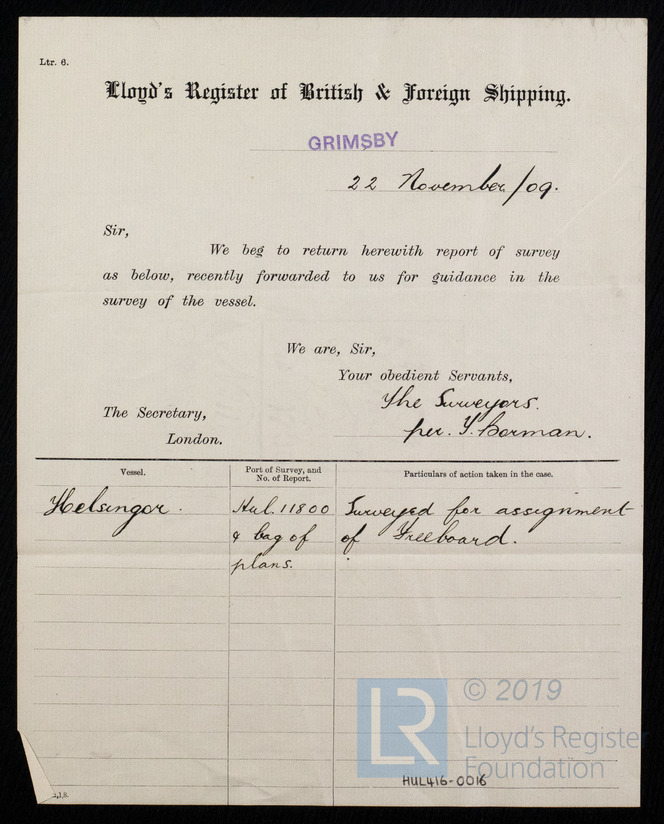 Ltr. 6.
Lloyd's Register of British & Foreign Shipping.
GRIMSBY
22 November/09.
Sir,
We beg to return herewith report of survey
as below, recently forwarded to us for guidance in the
survey of the vessel.
We are, Sir,
Your obedient Servants,
The Surveyors.
per. Y. Borman.
The Secretary,
London.
Vessel.
Port of Survey, and
No. of Report.
Particulars of action taken in the case.
Helsingor.
Hul. 11800
& bag of
plans.
Surveyed for assignment
of Freeboard.
LR
© 2019
Lloyd's Register
Foundation
HUL416-0016